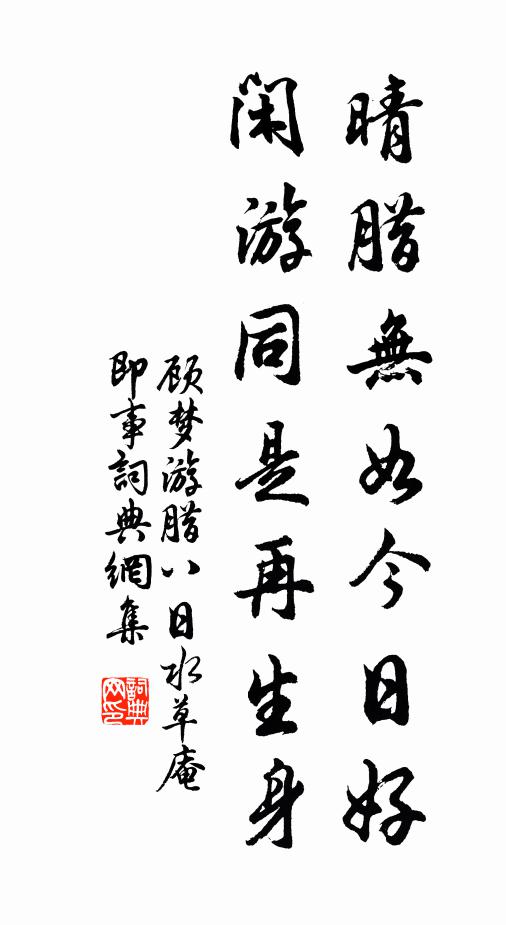 晴腊無如今日好
闲游同是再生身
顾梦游腊八日水草庵
即事詞典網集
詞典网印